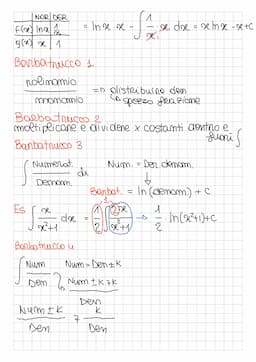 NOR DER
f(x) lnx 1/x = lnx · x - ∫ 1/x · x dx = x ln x - x + C
g(x) x 1
Barbatrucco 1
polinomio
monomio => distribuire den
↳ spezzo frazione
Barbatrucco 2
moltiplicare e dividere x costanti dentro e fuori ∫
Barbatrucco 3
∫ Numerat. / Denom. dx Num. = Der denom.
↓
Barbat. = ln(denom) + C
Es ∫ x/x²+1 dx = 1/2 ∫ 2x/x²+1 → 1/2 ln(x²+1)+C
Barbatrucco 4
∫ Num / Den Num = Den ± K
Num ± K ∓ K
Den
Num ± K / Den ∓ K / Den